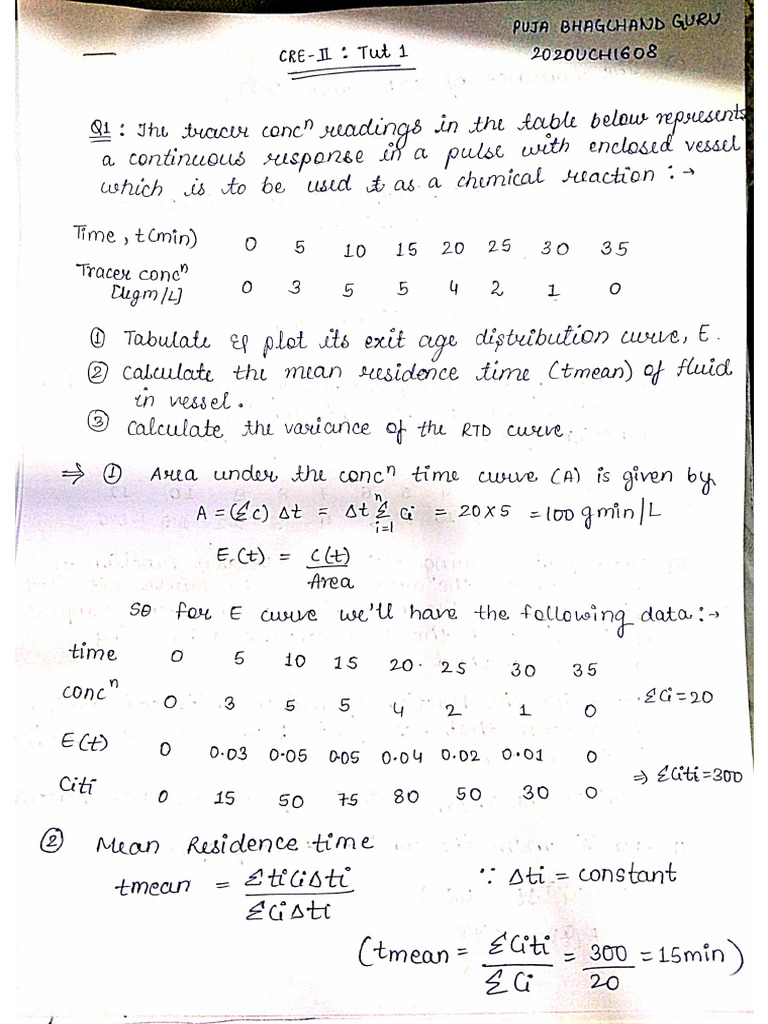 PUJA BHAGCHAND GURU
CRE-II : Tut 1
2020UCH1608
Q1 : The tracer concⁿ readings in the table below represents
a continuous response in a pulse with enclosed vessel
which is to be used t as a chemical reaction :→
Time, t(min) 0 5 10 15 20 25 30 35
Tracer concⁿ
[kgm/L] 0 3 5 5 4 2 1 0
① Tabulate & plot its exit age distribution curve, E.
② Calculate the mean residence time (tmean) of fluid
in vessel.
③ Calculate the variance of the RTD curve.
⇒ ① Area under the concⁿ time curve (A) is given by
A = (Σc) Δt = Δt Σⁿᵢ₌₁ Ci = 20 x 5 = 100 g min/L
E(t) = C(t)
Area
So for E curve we'll have the following data :→
time 0 5 10 15 20 25 30 35
concⁿ 0 3 5 5 4 2 1 0 ΣCi = 20
E(t) 0 0.03 0.05 0.05 0.04 0.02 0.01 0
Citi 0 15 50 75 80 50 30 0 ⇒ ΣCiti = 300
② Mean Residence time
tmean = ΣtiCiΔti ∵ Δti = constant
ΣCiΔti
(tmean = ΣCiti = 300 = 15min)
ΣCi 20